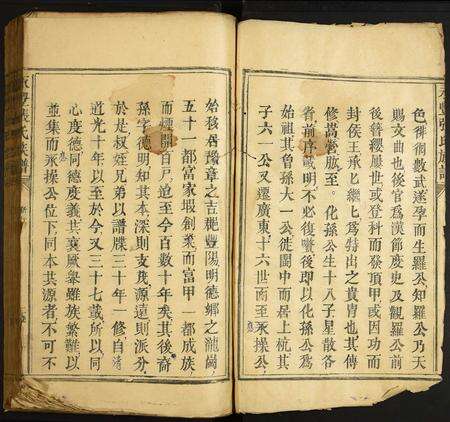 色徘徊數武遂孕而生羅公知羅公乃天
賜文曲也後官為漢節度史及觀羅公前
後簪纓屢世或登科而發頂甲或因功而
封侯王承七繼七為特出之貴胄也其傳
修蒿嘗肱至化孫公生十八子星散各
省前序載明不必復贅後即以化孫公為
始祖其曾孫大一公徙閩中而居上杭其
子六一公又遷廣東十六世而至永操公
始移居豫章之吉郡豐陽明德鄉之瀧岡
五十一都富家塅創業而富甲一都成族
而煙開百戶迨至今百數十年矣其後裔
孫字德明知其本深則支茂源遠則派分
於是叔姪兄弟以譜牒三十年一修自
道光十年以至於今又三十七載所以同
心德阿德度義其襄厥舉雖族繁難以
並集而永操公位下同本其源者不可不
永豐張氏族譜